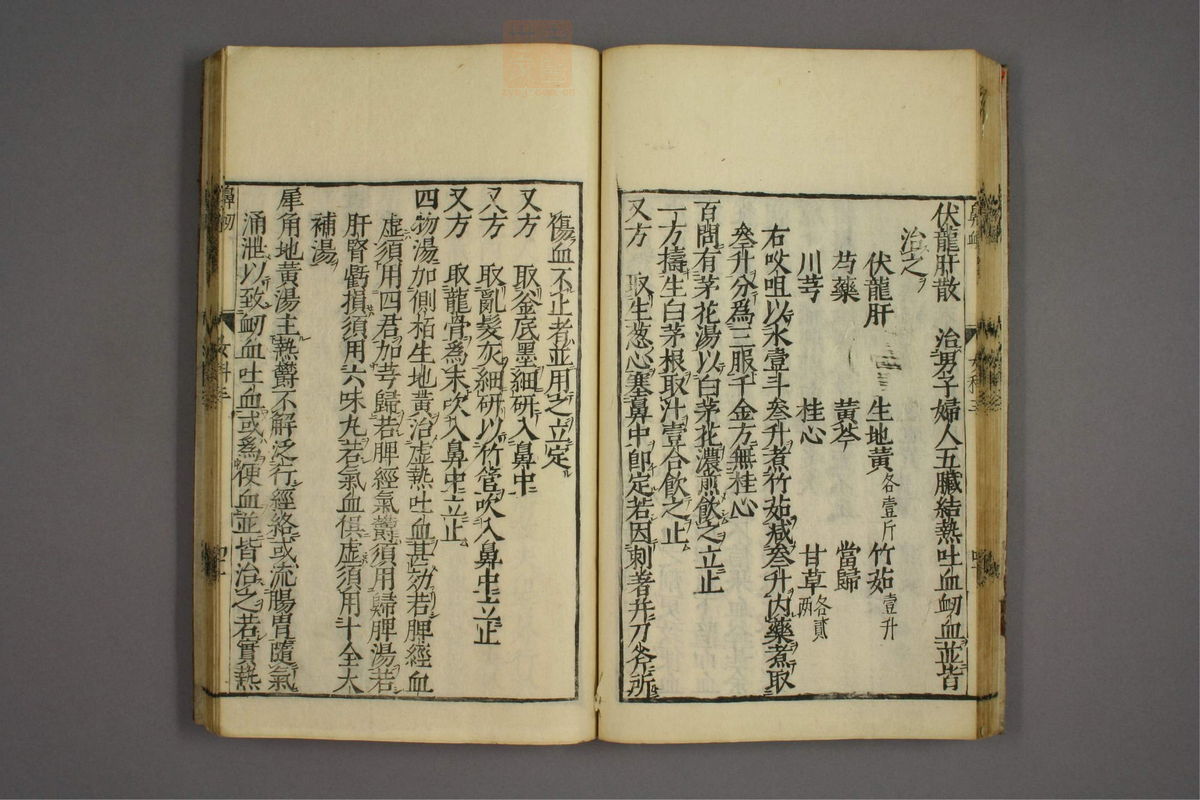 伏龍肝散　治男子婦人五臟結熱吐血衂血並皆
治之
伏龍肝　生地黃各壹斤　竹茹壹升
芍藥　黃芩　當歸
川芎　桂心　甘草各貳兩
右㕮咀以水壹斗叁升煮竹茹減叁升内藥煮取
叁升分爲三服千金方無桂心
百問有茅花湯以白茅花濃煎飲之立止
一方擣生白茅根取汁壹合飲之止
又方　取生葱心塞鼻中即定若因刺著并刀斧所
傷血不止者並用之立定
又方　取釜底墨細研入鼻中
又方　取亂髮灰細研以竹管吹入鼻中立止
又方　取龍骨爲末吹入鼻中立止
四物湯加側栢生地黃治虛熱吐血甚効若脾經血
虛須用四君加芎歸若脾經氣鬱須用歸脾湯若
肝腎虧損須用六味丸若氣血俱虛須用十全大
補湯
犀角地黃湯主熱欝不解泛行經絡或流腸胃隨氣
涌泄以致衂血吐血或爲便血並皆治之若實熱
鼻衂
女科三